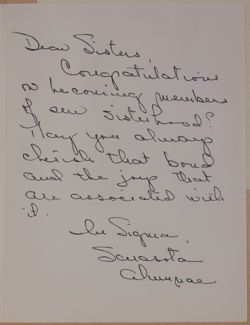 Dear Sisters,
Congratulations
on becoming members
of our sisterhood!
May you always
cherish that bond
and the joys that
are associated with
it.
In Sigma,
Sarasota
Alumnae